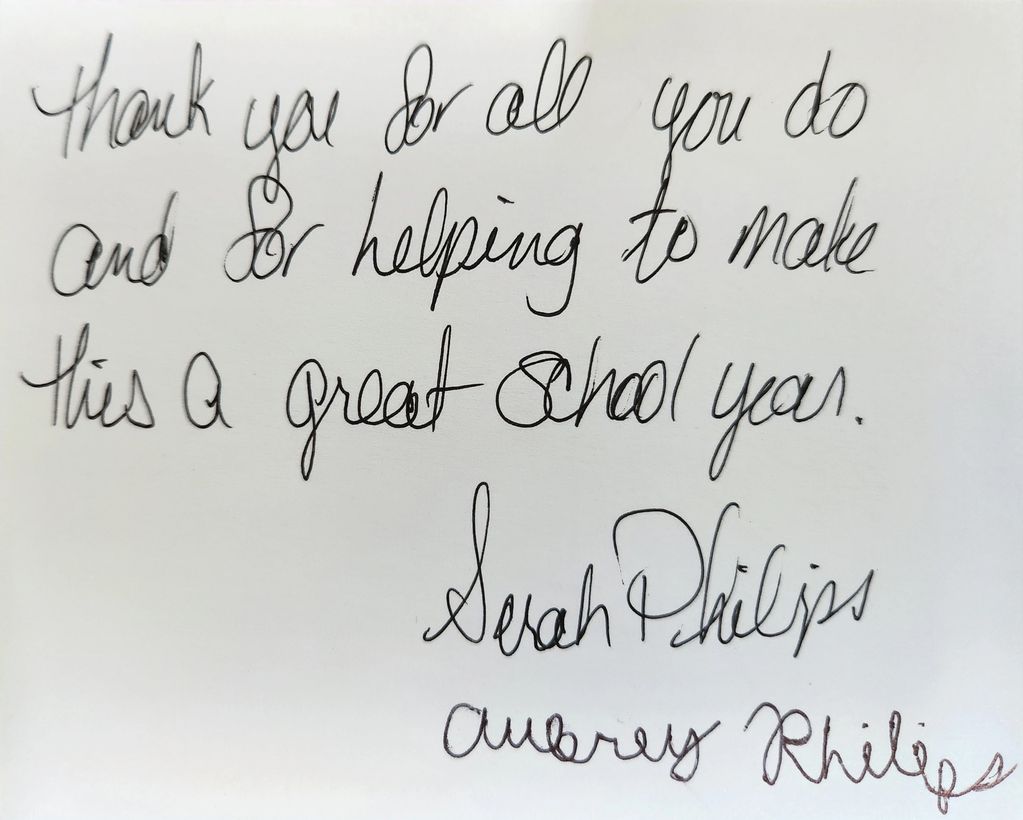 thank you for all you do
and for helping to make
this a great school year.
Serah Philips
Aubrey Philips